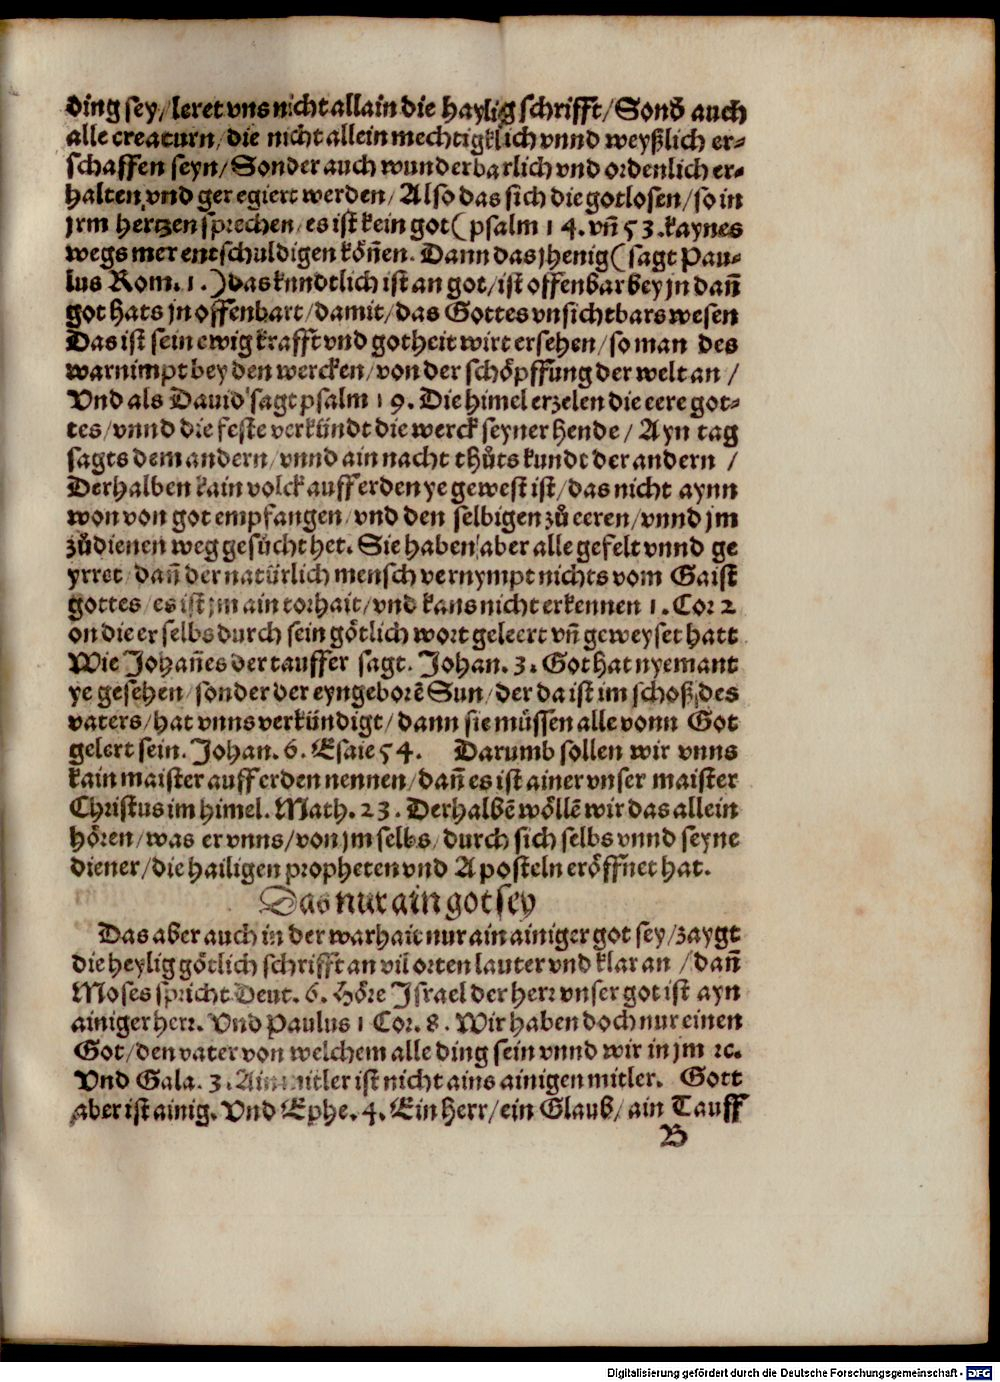 ding sey/ leret vns nicht allain die haylig schrifft/ Sonđ auch
alle creaturn/ die nicht allein mechtigklich vnnd weyßlich er⸗
schaffen seyn/ Sonder auch wunderbarlich vnd ordenlich er⸗
halten vnd geregiert werden/ Also das sich die gotlosen/ so in
jrm hertzen sprechen/ es ist kein got (psalm 14. vñ 53. kaynes
wegs mer entschuldigen köñen. Dann das jhenig (sagt Pau⸗
lus Rom. 1.) das kundtlich ist an got/ ist offenbar bey jn dañ
got hats jn offenbart/ damit/ das Gottes vnsichtbars wesen
Das ist sein ewig krafft vnd gotheit wirt ersehen/ so man des
warnimpt bey den wercken/ von der schöpffung der welt an /
Vnd als Dauid sagt psalm 19. Die himel erzelen die eere got⸗
tes/ vnnd die feste verkündt die werck seyner hende / Ayn tag
sagts dem andern/ vnnd ain nacht thůts kundt der andern /
Derhalben kain volck auff erden ye gewest ist/ das nicht aynn
won von got empfangen/ vnd den selbigen zů eeren/ vnnd jm
zůdienen weg gesůcht het. Sie haben aber alle gefelt vnnd ge
yrret/ dañ der natürlich mensch vernympt nichts vom Gaist
gottes/ es ist jm ain torhait/ vnd kans nicht erkennen 1. Cor 2
on die er selbs durch sein götlich wort geleert vñ geweyset hatt
Wie Johañes der tauffer sagt. Johan. 3. Got hat nyemant
ye gesehen/ sonder der eyngeborẽ Sun/ der da ist im schoß des
vaters/ hat vnns verkündigt/ dann sie müssen alle vonn Got
gelert sein. Johan. 6. Esaie 54. Darumb sollen wir vnns
kain maister auff erden nennen/ dañ es ist ainer vnser maister
Christus im himel. Math. 23. Derhalbẽ wöllẽ wir das allein
hören/ was er vnns/ von jm selbs/ durch sich selbs vnnd seyne
diener/ die hailigen propheten vnd Aposteln eröffñet hat.
Das nur ain got sey
Das aber auch in der warhait nur ain ainiger got sey/ zaygt
die heylig götlich schrifft an vil orten lauter vnd klar an / dañ
Moses spricht Deut. 6. Höre Israel der herr vnser got ist ayn
ainiger herr. Vnd Paulus 1 Cor. 8. Wir haben doch nur einen
Got/ den vater von welchem alle ding sein vnnd wir in jm ꝛc.
Vnd Gala. 3. Ain mitler ist nicht ains ainigen mitler. Gott
aber ist ainig. Vnd Ephe. 4. Ein Herr/ ein Glaub/ ain Tauff
B
Digitalisierung gefördert durch die Deutsche Forschungsgemeinschaft - DFG